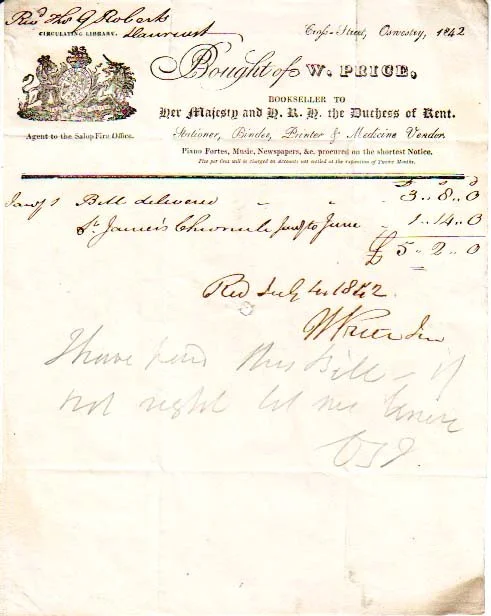 Revd Thos G Roberts
Llanrwst
CIRCULATING LIBRARY.
Cross-Street, Oswestry, 1842
Bought of W. PRICE,
BOOKSELLER TO
Her Majesty and H. R. H. the Duchess of Kent.
Agent to the Salop Fire Office.
Stationer, Binder, Printer & Medicine Vendor.
Piano Fortes, Music, Newspapers, &c. procured on the shortest Notice.
Five per Cent will be charged on Accounts not settled at the expiration of Twelve Months.
Jany 1 Bill delivered " " 3 .. 8 .. 0
St. James's Chronicle Jany to June 1 .. 14 .. 0
£ 5 .. 2 .. 0
Red July 4 1842.
W Price Jun
I have paid this Bill - if
not right let me know